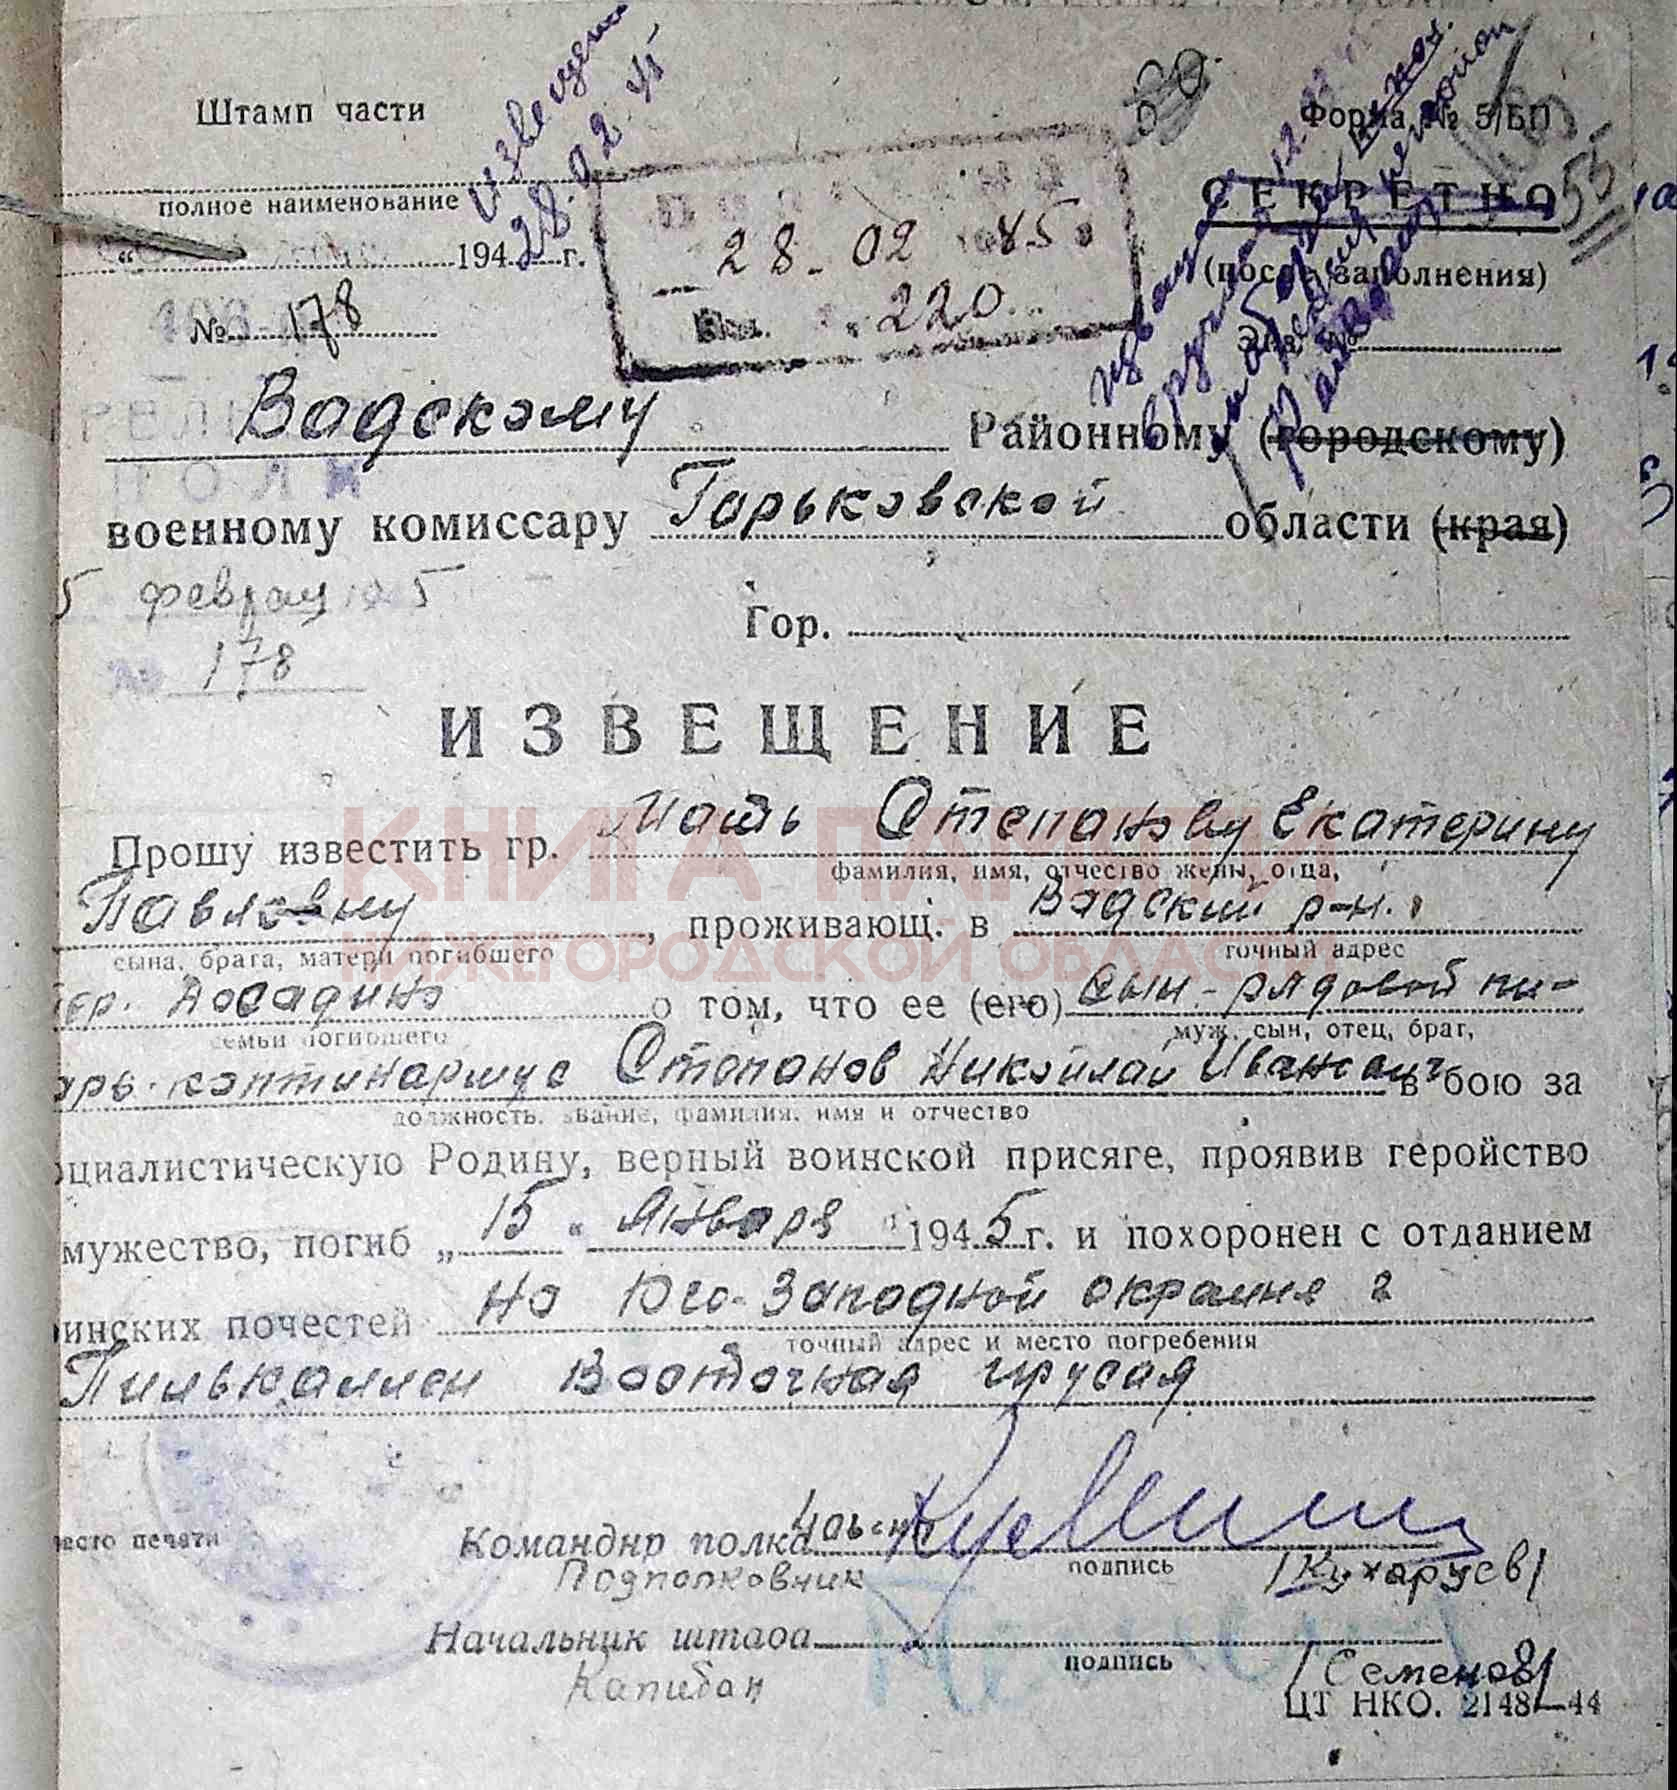 извещение
28.02.45
Штамп части
Форма № 5/БП
полное наименование
СЕКРЕТНО
53
194 г.
28-02 1945
(после заполнения)
№ 178
Вх. 220
Экз. №
Вадскому Районному (городскому)
ПОЛК
военному комиссару Горьковской области (края)
5 феврал 1945
Гор.
№ 178
ИЗВЕЩЕНИЕ
Прошу известить гр. Мать Степанову Екатерину
фамилия, имя, отчество жены, отца,
Павловну, проживающ. в Вадский р-н.
сына, брата, матери погибшего
точный адрес
о том, что ее (его) сын - рядовой пи-
семьи погибшего
муж, сын, отец, брат,
арь-каптинармус Степанов Николай Иванович в бою за
должность, звание, фамилия, имя и отчество
оциалистическую Родину, верный воинской присяге, проявив геройство
мужество, погиб „15“ Января 1945 г. и похоронен с отданием
инских почестей на Юго-Западной окраине г
точный адрес и место погребения
Пилькаллен Восточная Прусия
КНИГА ПАМЯТИ
НИЖЕГОРОДСКОЙ ОБЛАСТИ
есто печати
Командир полка
подпись
Подполковник
/Кухарцев/
Начальник штаба
подпись
Капитан
/Семенов/
ЦТ НКО. 2148—44